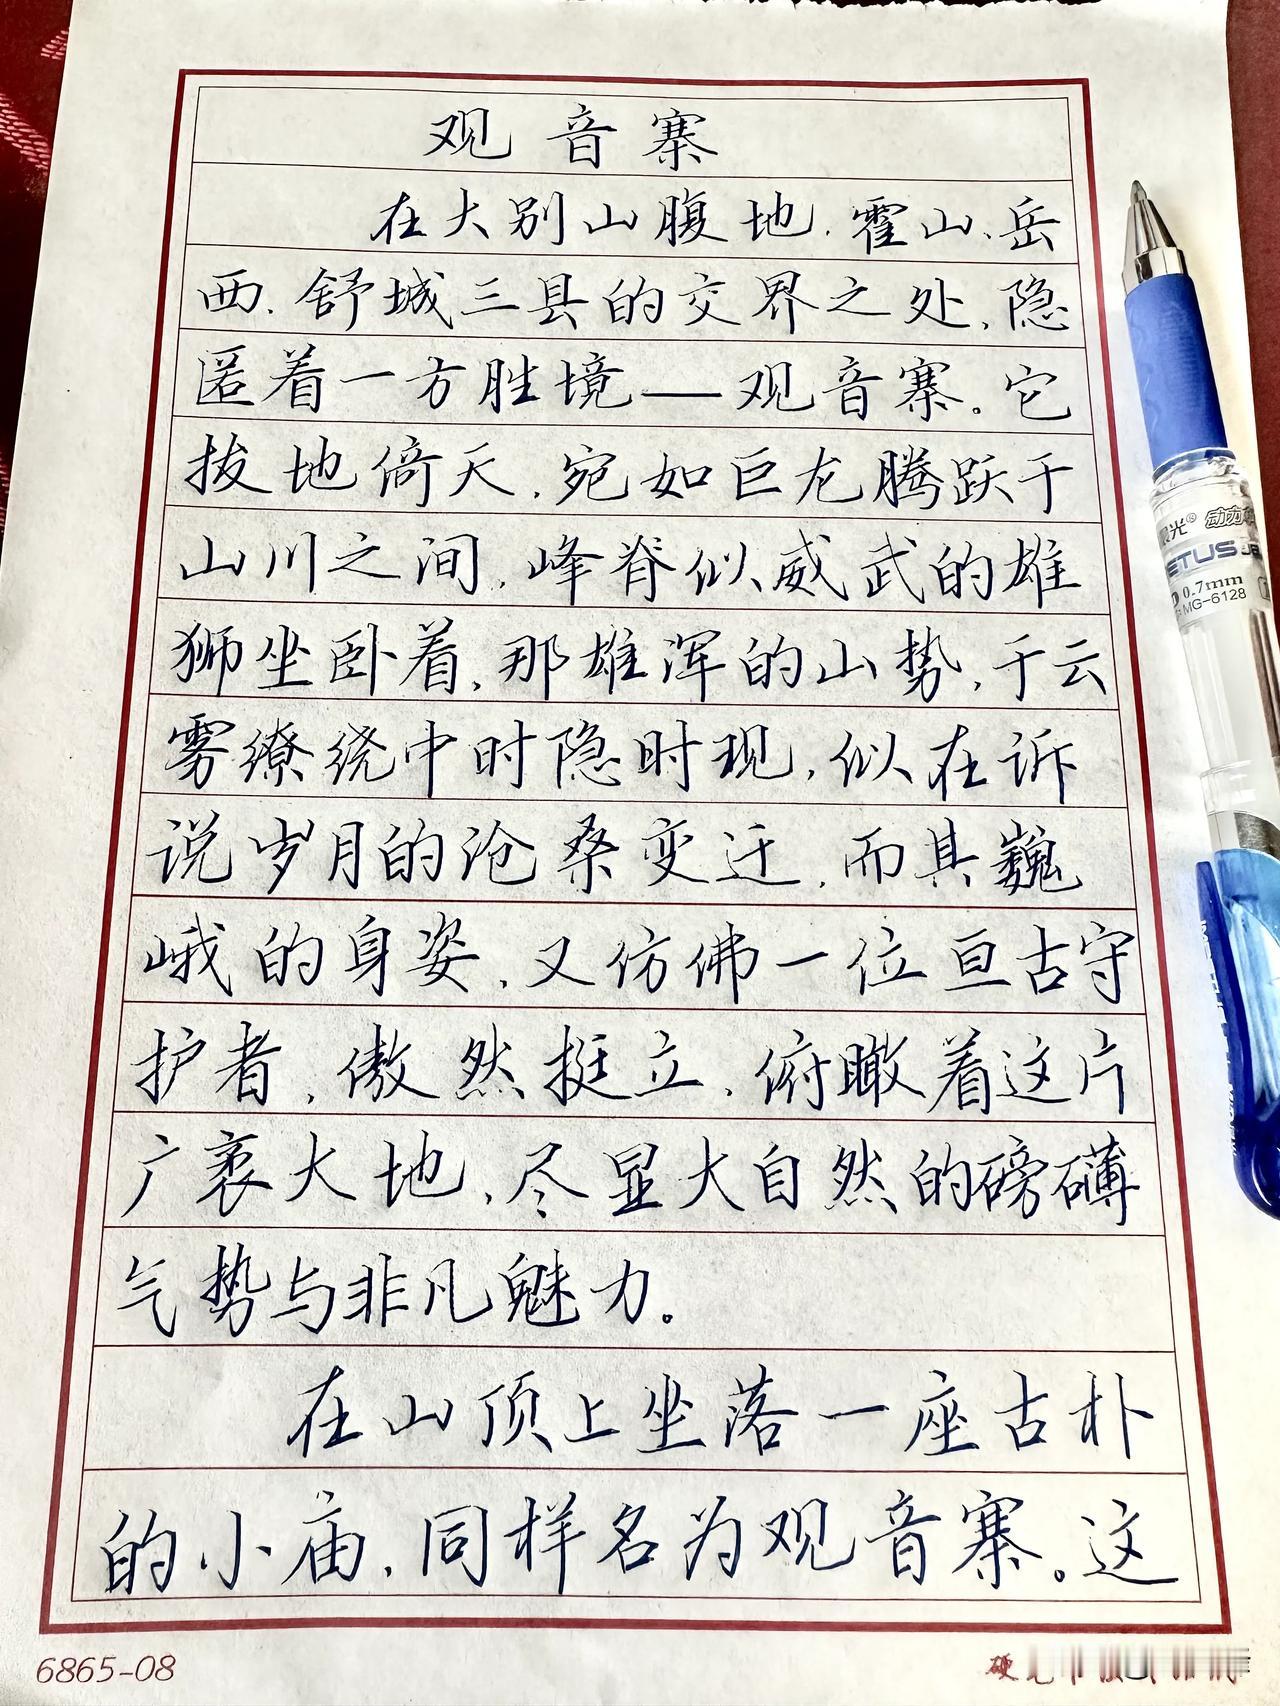 观音寨
在大别山腹地，霍山、岳
西、舒城三县的交界之处，隐
匿着一方胜境——观音寨。它
拔地倚天，宛如巨龙腾跃于
山川之间，峰脊似威武的雄
狮坐卧着，那雄浑的山势，于云
雾缭绕中时隐时现，似在诉
说岁月的沧桑变迁，而其巍
峨的身姿，又仿佛一位亘古守
护者，傲然挺立，俯瞰着这片
广袤大地，尽显大自然的磅礴
气势与非凡魅力。
在山顶上坐落一座古朴
的小庙，同样名为观音寨。这
6865-08
硬
光® 动力
0.7mm
MG-6128